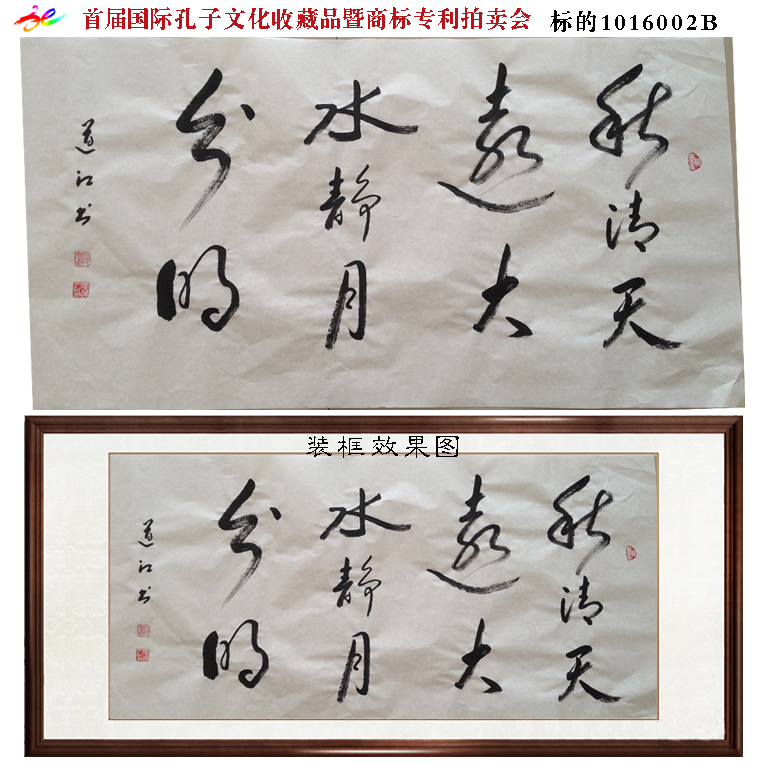 首届国际孔子文化收藏品暨商标专利拍卖会 标的1016002B
秋清天
遠大
水静月
分明
道江书
装框效果图
秋清天
遠大
水静月
分明
道江书